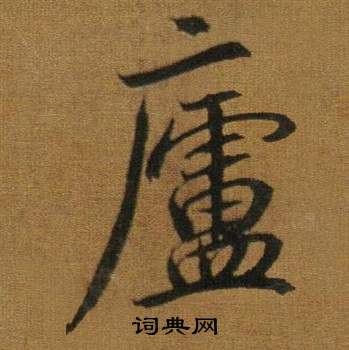 廬
词典网